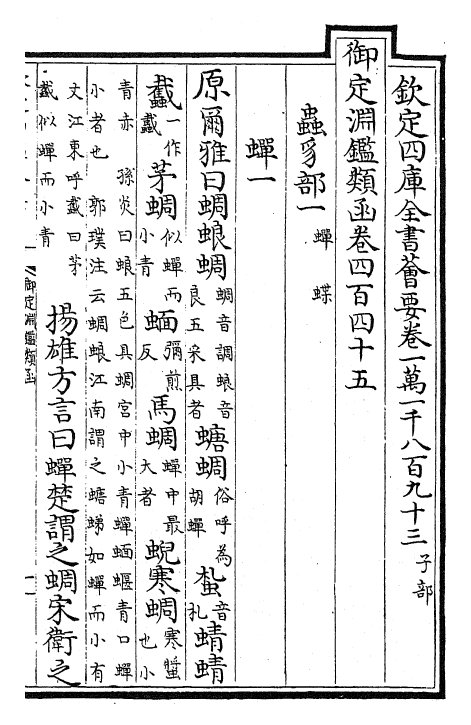 欽定四庫全書薈要卷一萬一千八百九十三 子部
御定淵鑑類函卷四百四十五
蟲豸部一 蟬 蝶
蟬一
原爾雅曰蜩蜋蜩 蜩音調蜋音良五采具者 螗蜩 俗呼為胡蟬 蚻 音札 蜻蜻
蠽 一作𧕙 茅蜩 似蟬而小青 蝒 彌煎反 馬蜩 蟬中最大者 蜺寒蜩 寒螿也小
青赤 孫炎曰蜋五色具蜩宮中小青蟬蝒蝘青口蟬
小者也 郭璞注云蜩蜋江南謂之螗蛦如蟬而小有
文江東呼𧕙曰茅
𧕙似蟬而小青 揚雄方言曰蟬楚謂之蜩宋衛之
御定淵鑑類函 一